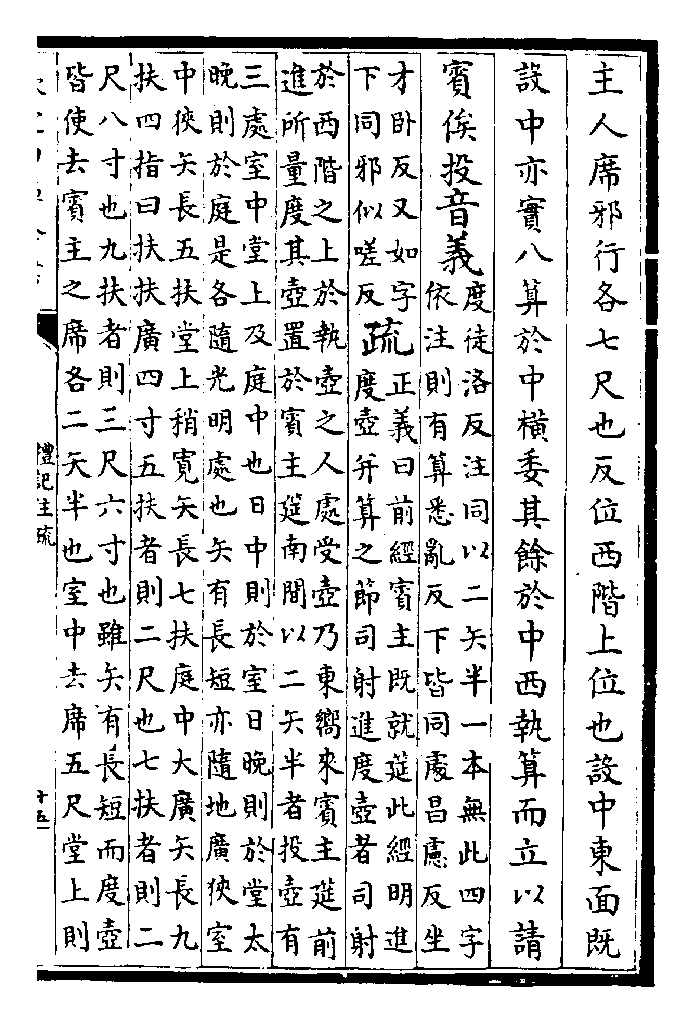 主人席邪行各七尺也反位西階上位也設中東面既
設中亦實八算於中橫委其餘於中西執算而立以請
賓俟投音義度徒洛反注同以二矢半一本無此四字
依注則有算悉亂反下皆同處昌慮反坐
才卧反又如字
下同邪似嗟反疏正義曰前經賓主既就筵此經明進
度壺并算之節司射進度壺者司射
於西階之上於執壺之人處受壺乃東嚮來賓主筵前
進所量度其壺置於賓主筵南間以二矢半者投壺有
三處室中堂上及庭中也日中則於室日晚則於堂太
晚則於庭是各隨光明處也矢有長短亦隨地廣狹室
中狹矢長五扶堂上稍寬矢長七扶庭中大廣矢長九
扶四指曰扶扶廣四寸五扶者則二尺也七扶者則二
尺八寸也九扶者則三尺六寸也雖矢有長短而度壺
皆使去賓主之席各二矢半也室中去席五尺堂上則
禮記注疏
十五